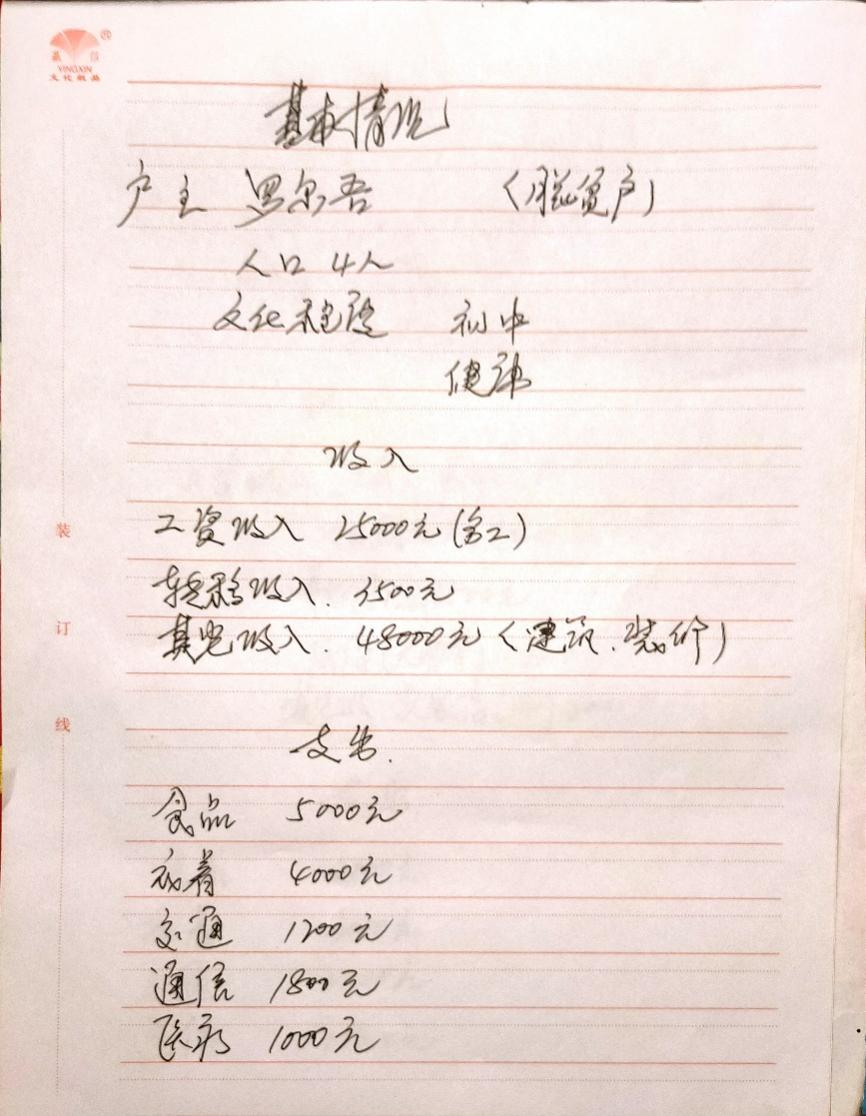 赢信
YINGXIN
文化纸品
基本情况
户主 罗尔吾 (脱贫户)
人口 4人
文化程度 初中
健康
收入
工资收入 25000元(务工)
转移收入. 3500元
其他收入. 48000元(建筑.装修)
支出.
食品 5000元
衣着 4000元
交通 1200元
通信 1800元
医疗 1000元
装
订
线